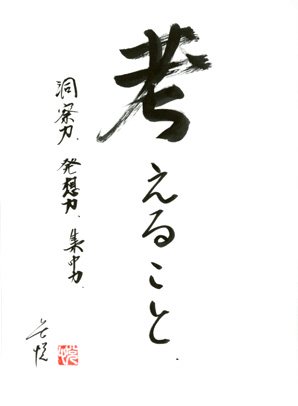 考えること.
洞察力、発想力、集中力、